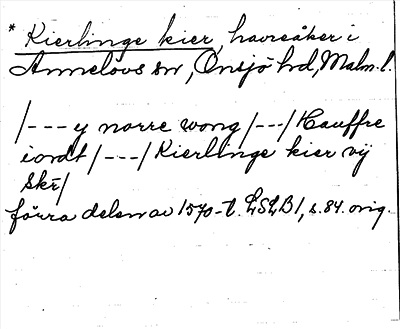 * Kierlinge kier, havreåker i
Annelövs sn, Onsjö hd, Malm. l.
/---y norre wong /---/ Hauffre
iordt /---/ Kierlinge kier vij
Skr/
förra delen av 1570-t. LSLB 1, s. 84. orig.